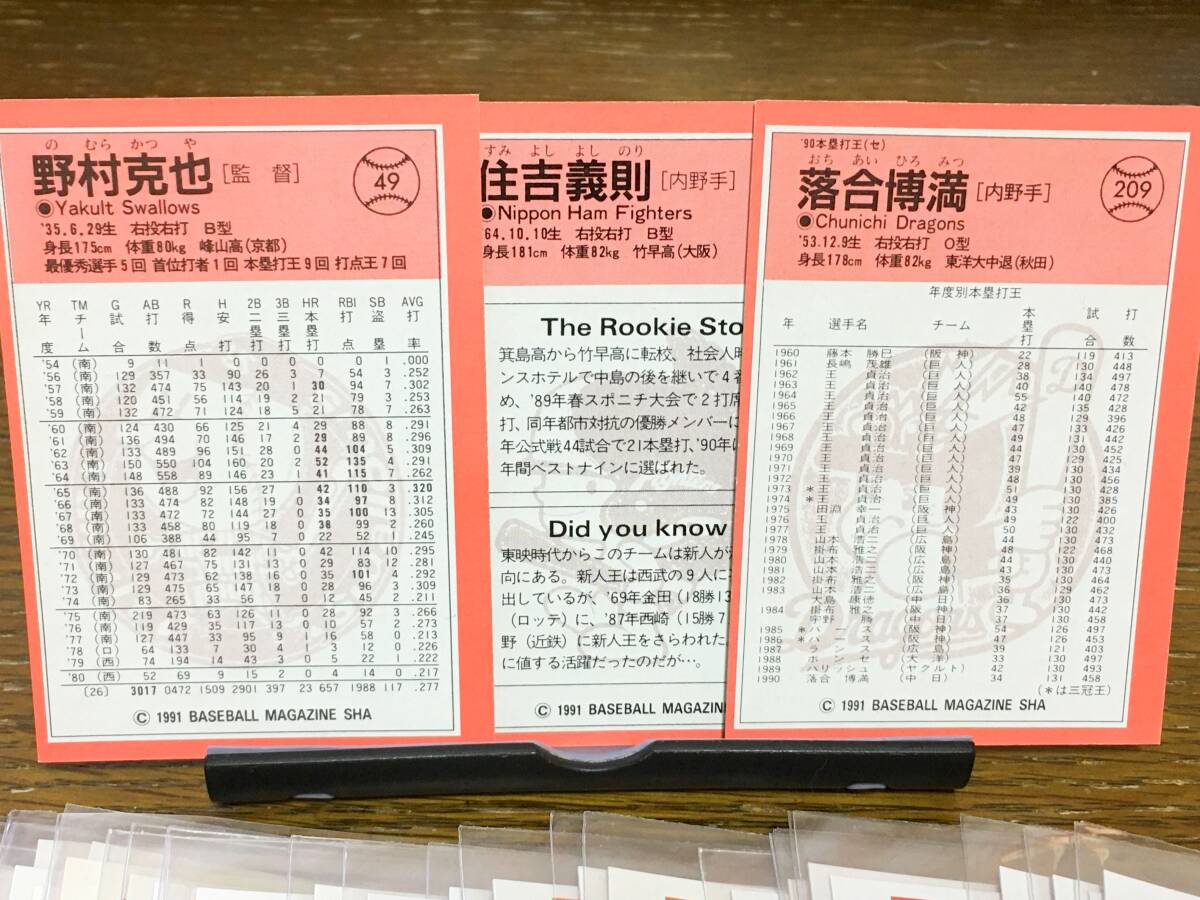 の むら かつ や
野村克也[監 督]
49
◉Yakult Swallows
'35.6.29生 右投右打 B型
身長175cm 体重80kg 峰山高(京都)
最優秀選手5回 首位打者1回 本塁打王9回 打点王7回
YR年度 TMチーム G試合 AB打数 R得点 H安打 2B二塁打 3B三塁打 HR本塁打 RBI打点 SB盗塁 AVG打率
'54 (南) 9 11 1 0 0 0 0 0 0 .000
'56 (南) 129 357 33 90 26 3 7 54 3 .252
'57 (南) 132 474 75 143 20 1 30 94 7 .302
'58 (南) 120 451 56 114 19 2 21 79 3 .253
'59 (南) 132 472 71 124 18 5 21 78 7 .263
'60 (南) 124 430 66 125 21 4 29 88 8 .291
'61 (南) 136 494 70 146 17 2 29 89 8 .296
'62 (南) 133 489 96 151 28 0 44 104 5 .309
'63 (南) 150 550 104 160 20 2 52 135 4 .291
'64 (南) 148 558 89 146 23 1 41 115 7 .262
'65 (南) 136 488 92 156 27 1 42 110 3 .320
'66 (南) 133 474 82 148 19 0 34 97 8 .312
'67 (南) 133 472 72 144 27 0 35 100 13 .305
'68 (南) 133 458 80 119 18 0 38 99 2 .260
'69 (南) 106 388 44 95 7 0 22 52 1 .245
'70 (南) 130 481 82 142 11 0 42 114 10 .295
'71 (南) 127 467 131 0 29 83 .281
'72 (南) 129 473 62 138 0 35 101 4 .292
'73 (南) 129 475 65 147 0 28 96 3 .309
'74 (南) 83 265 33 56 7 0 12 45 2 .211
'75 (南) 473 63 126 11 0 28 92 3 .266
'76 (南) 117 13 0 10 57 2 .273
'77 (南) 127 447 33 95 9 1 16 58 0 .213
'78 (ロ) 64 133 7 30 4 1 3 12 0 .226
'79 (西) 74 194 14 43 3 0 5 22 1 .222
'80 (西) 52 69 9 15 2 0 4 14 0 .217
[26] 3017 0472 1509 2901 397 23 657 1988 117 .277
Ⓒ 1991 BASEBALL MAGAZINE SHA
すみ よし よし のり
住吉義則[内野手]
◉Nippon Ham Fighters
'64.10.10生 右投右打 B型
身長181cm 体重82kg 竹早高(大阪)
The Rookie Sto
箕島高から竹早高に転校、社会人時
ンスホテルで中島の後を継いで4番
め、'89年春スポニチ大会で2打席
打、同年都市対抗の優勝メンバーに
年公式戦44試合で21本塁打、'90年に
年間ベストナインに選ばれた。
Did you know
東映時代からこのチームは新人が
向にある。新人王は西武の9人に
出しているが、'69年金田(18勝13
(ロッテ)に、'87年西崎(15勝7
野(近鉄)に新人王をさらわれた。
に値する活躍だったのだが…。
Ⓒ 1991 BASEBALL MAGAZINE SHA
'90本塁打王(セ)
おち あい ひろ みつ
落合博満[内野手]
209
◉Chunichi Dragons
'53.12.9生 右投右打 O型
身長178cm 体重82kg 東洋大中退(秋田)
年度別本塁打王
年 選手名 チーム 本塁打 試合 打数
1960 藤本 勝巳 (阪神) 22 119 413
1961 長嶋 茂雄 (巨人) 28 130 448
1962 王 貞治 (巨人) 38 134 497
1963 王 貞治 (巨人) 40 140 478
1964 王 貞治 (巨人) 55 140 472
1965 王 貞治 (巨人) 42 135 428
1966 王 貞治 (巨人) 48 129 396
1967 王 貞治 (巨人) 47 133 426
1968 王 貞治 (巨人) 49 131 442
1969 王 貞治 (巨人) 44 130 452
1970 王 貞治 (巨人) 47 129 425
1971 王 貞治 (巨人) 39 130 434
1972 王 貞治 (巨人) 48 130 456
1973 *王 貞治 (巨人) 51 130 428
1974 *王 貞治 (巨人) 49 130 385
1975 田淵 幸一 (阪神) 43 130 426
1976 王 貞治 (巨人) 49 122 400
1977 王 貞治 (巨人) 50 130 432
1978 山本 浩二 (広島) 44 130 473
1979 掛布 雅之 (阪神) 48 122 468
1980 山本 浩二 (広島) 44 130 440
1981 山本 浩二 (広島) 43 130 473
1982 掛布 雅之 (阪神) 35 130 464
1983 山本 浩二 (広島) 36 129 462
大島 康徳 (中日) 36 130 473
1984 掛布 雅之 (阪神) 37 130 442
宇野 勝 (中日) 37 130 458
1985 *バース (阪神) 54 126 497
1986 *バース (阪神) 47 126 453
1987 ランス (広島) 39 121 403
1988 ポンセ (大洋) 33 130 497
1989 パリッシュ (ヤクルト) 42 130 493
1990 落合 博満 (中日) 34 131 458
(*は三冠王)
Ⓒ 1991 BASEBALL MAGAZINE SHA